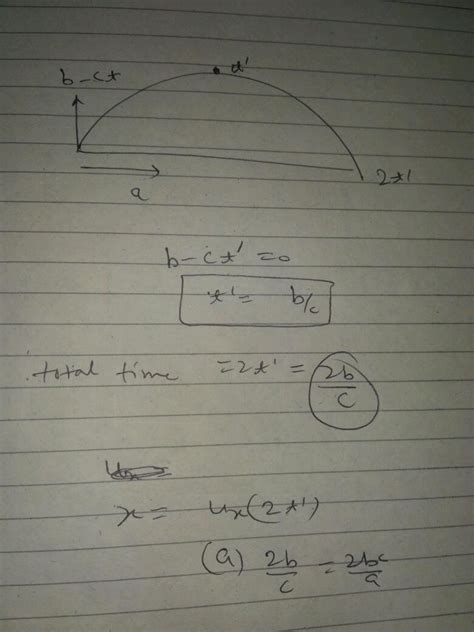 b-ct
t'
2t'
a
b-ct' =0
t'= b/c
total time =2t' = 2b/c
x= ux(2t')
(a) 2b/c = 2bc/a